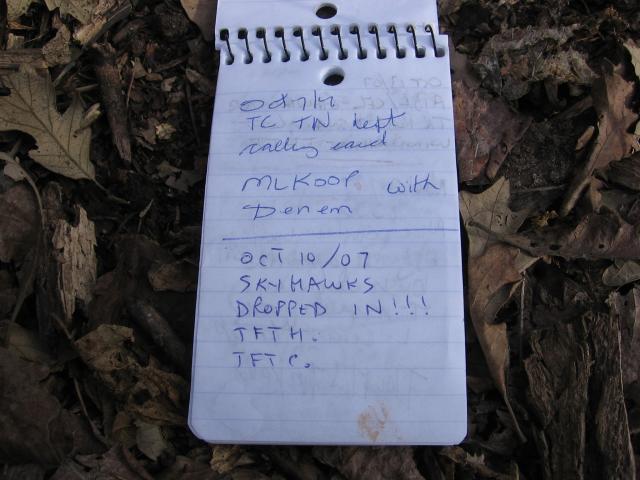 TC TN Left
calling card
MLKOOP with
Denem
OCT 10/07
SKYHAWKS
DROPPED IN!!!
TFTH.
TFTC.